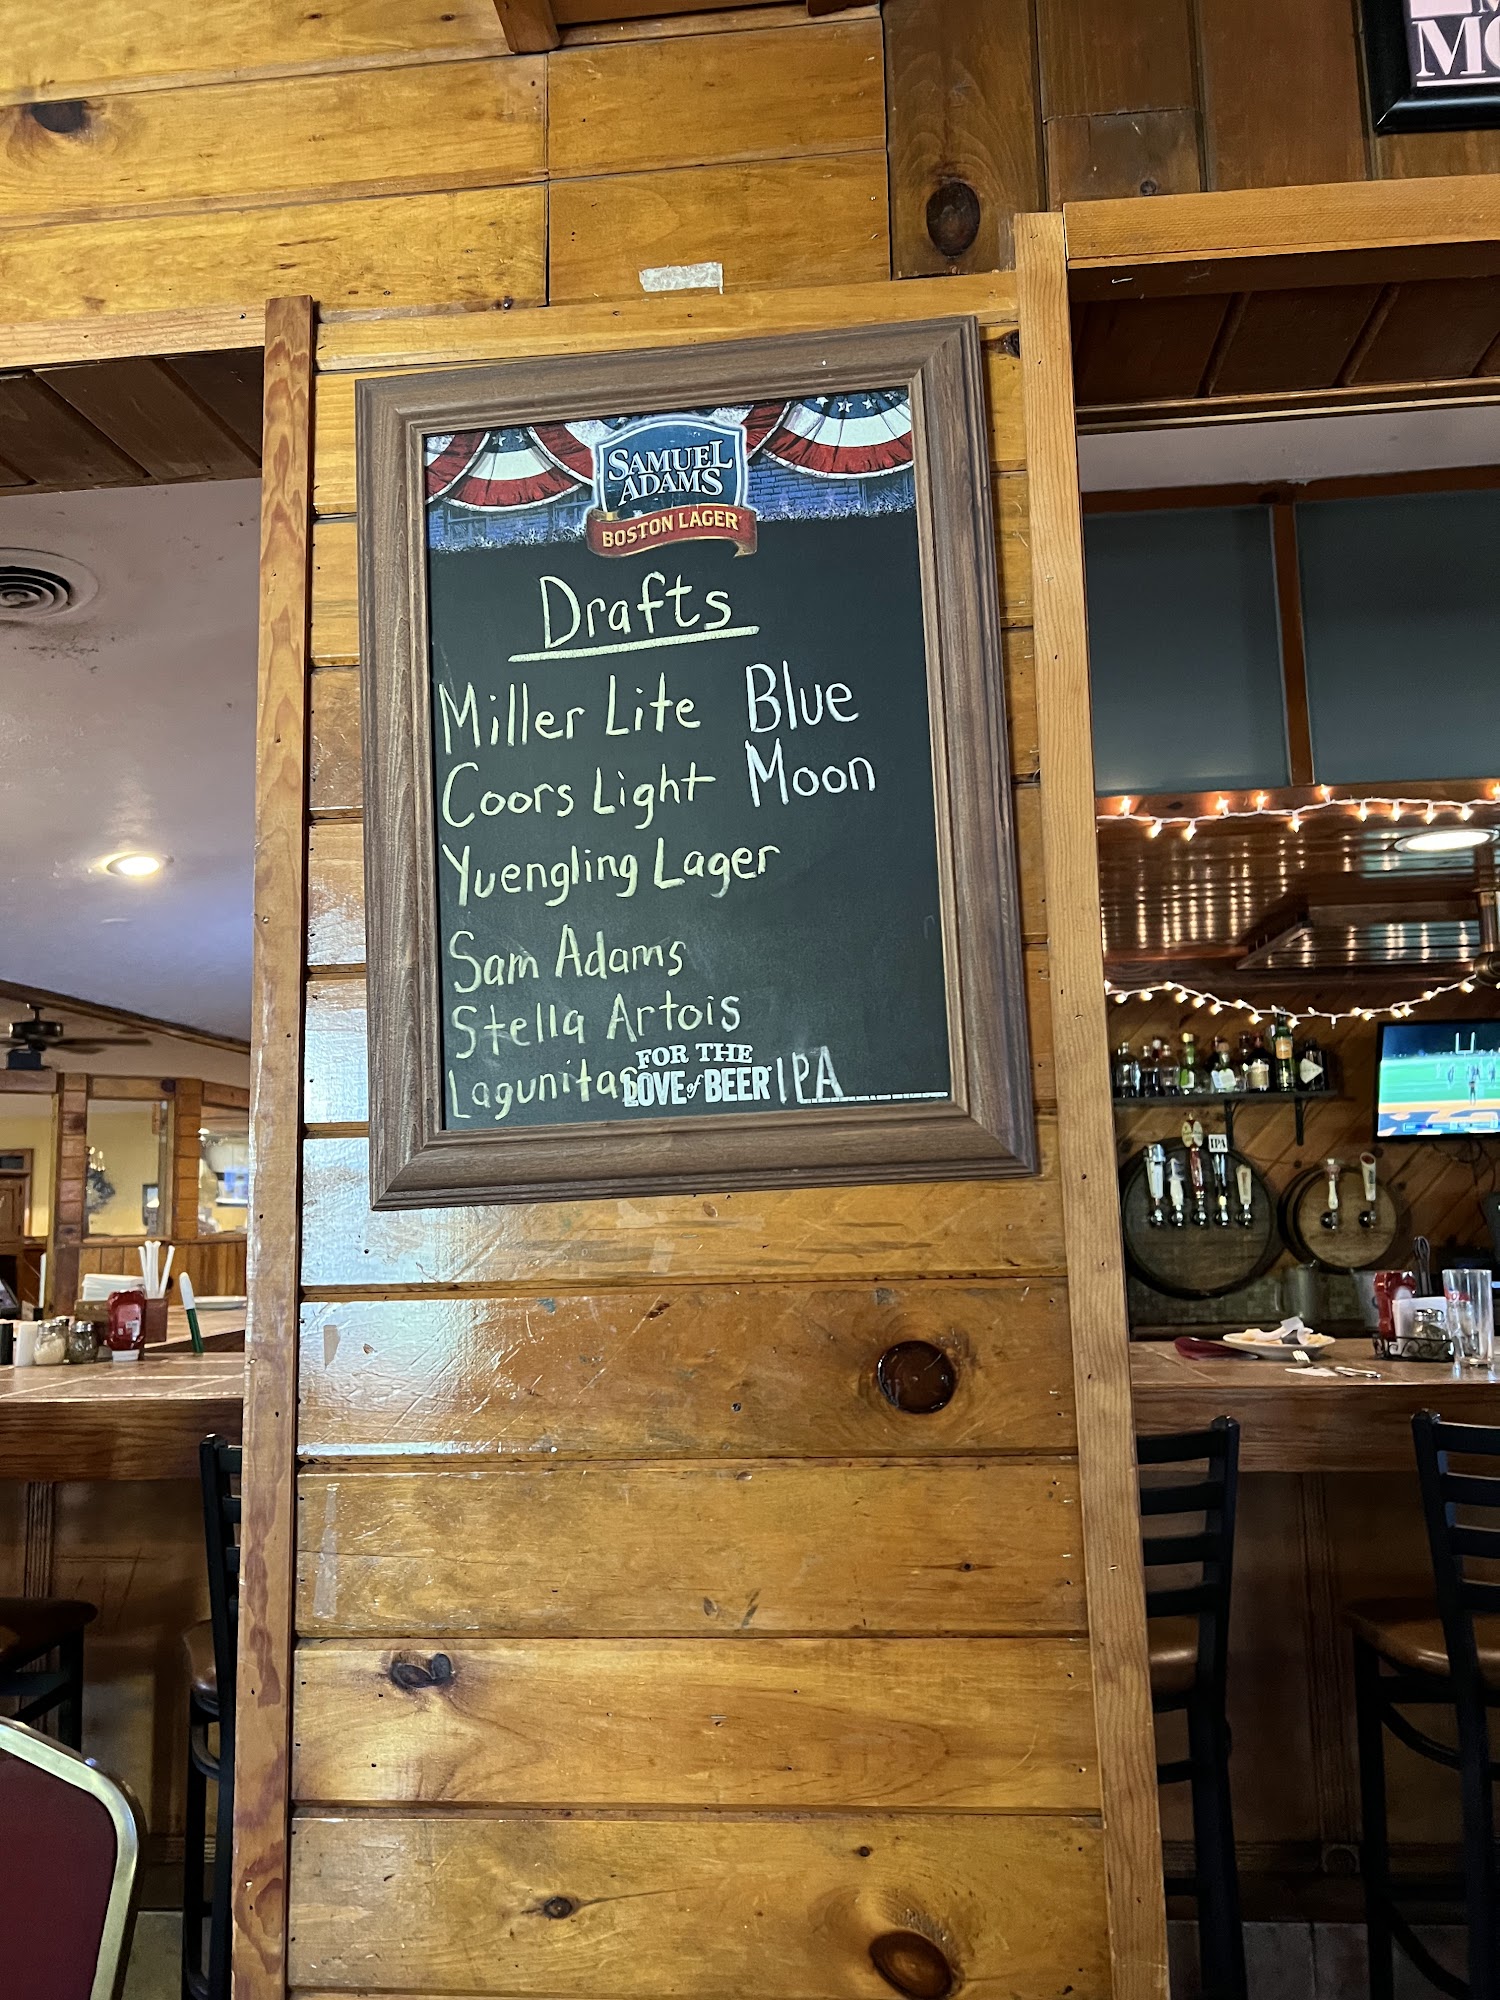 SAMUEL
ADAMS
BOSTON LAGER
Drafts
Miller Lite Blue
Coors Light Moon
Yuengling Lager
Sam Adams
Stella Artois
Lagunitas IPA
FOR THE
LOVE of BEER
IPA